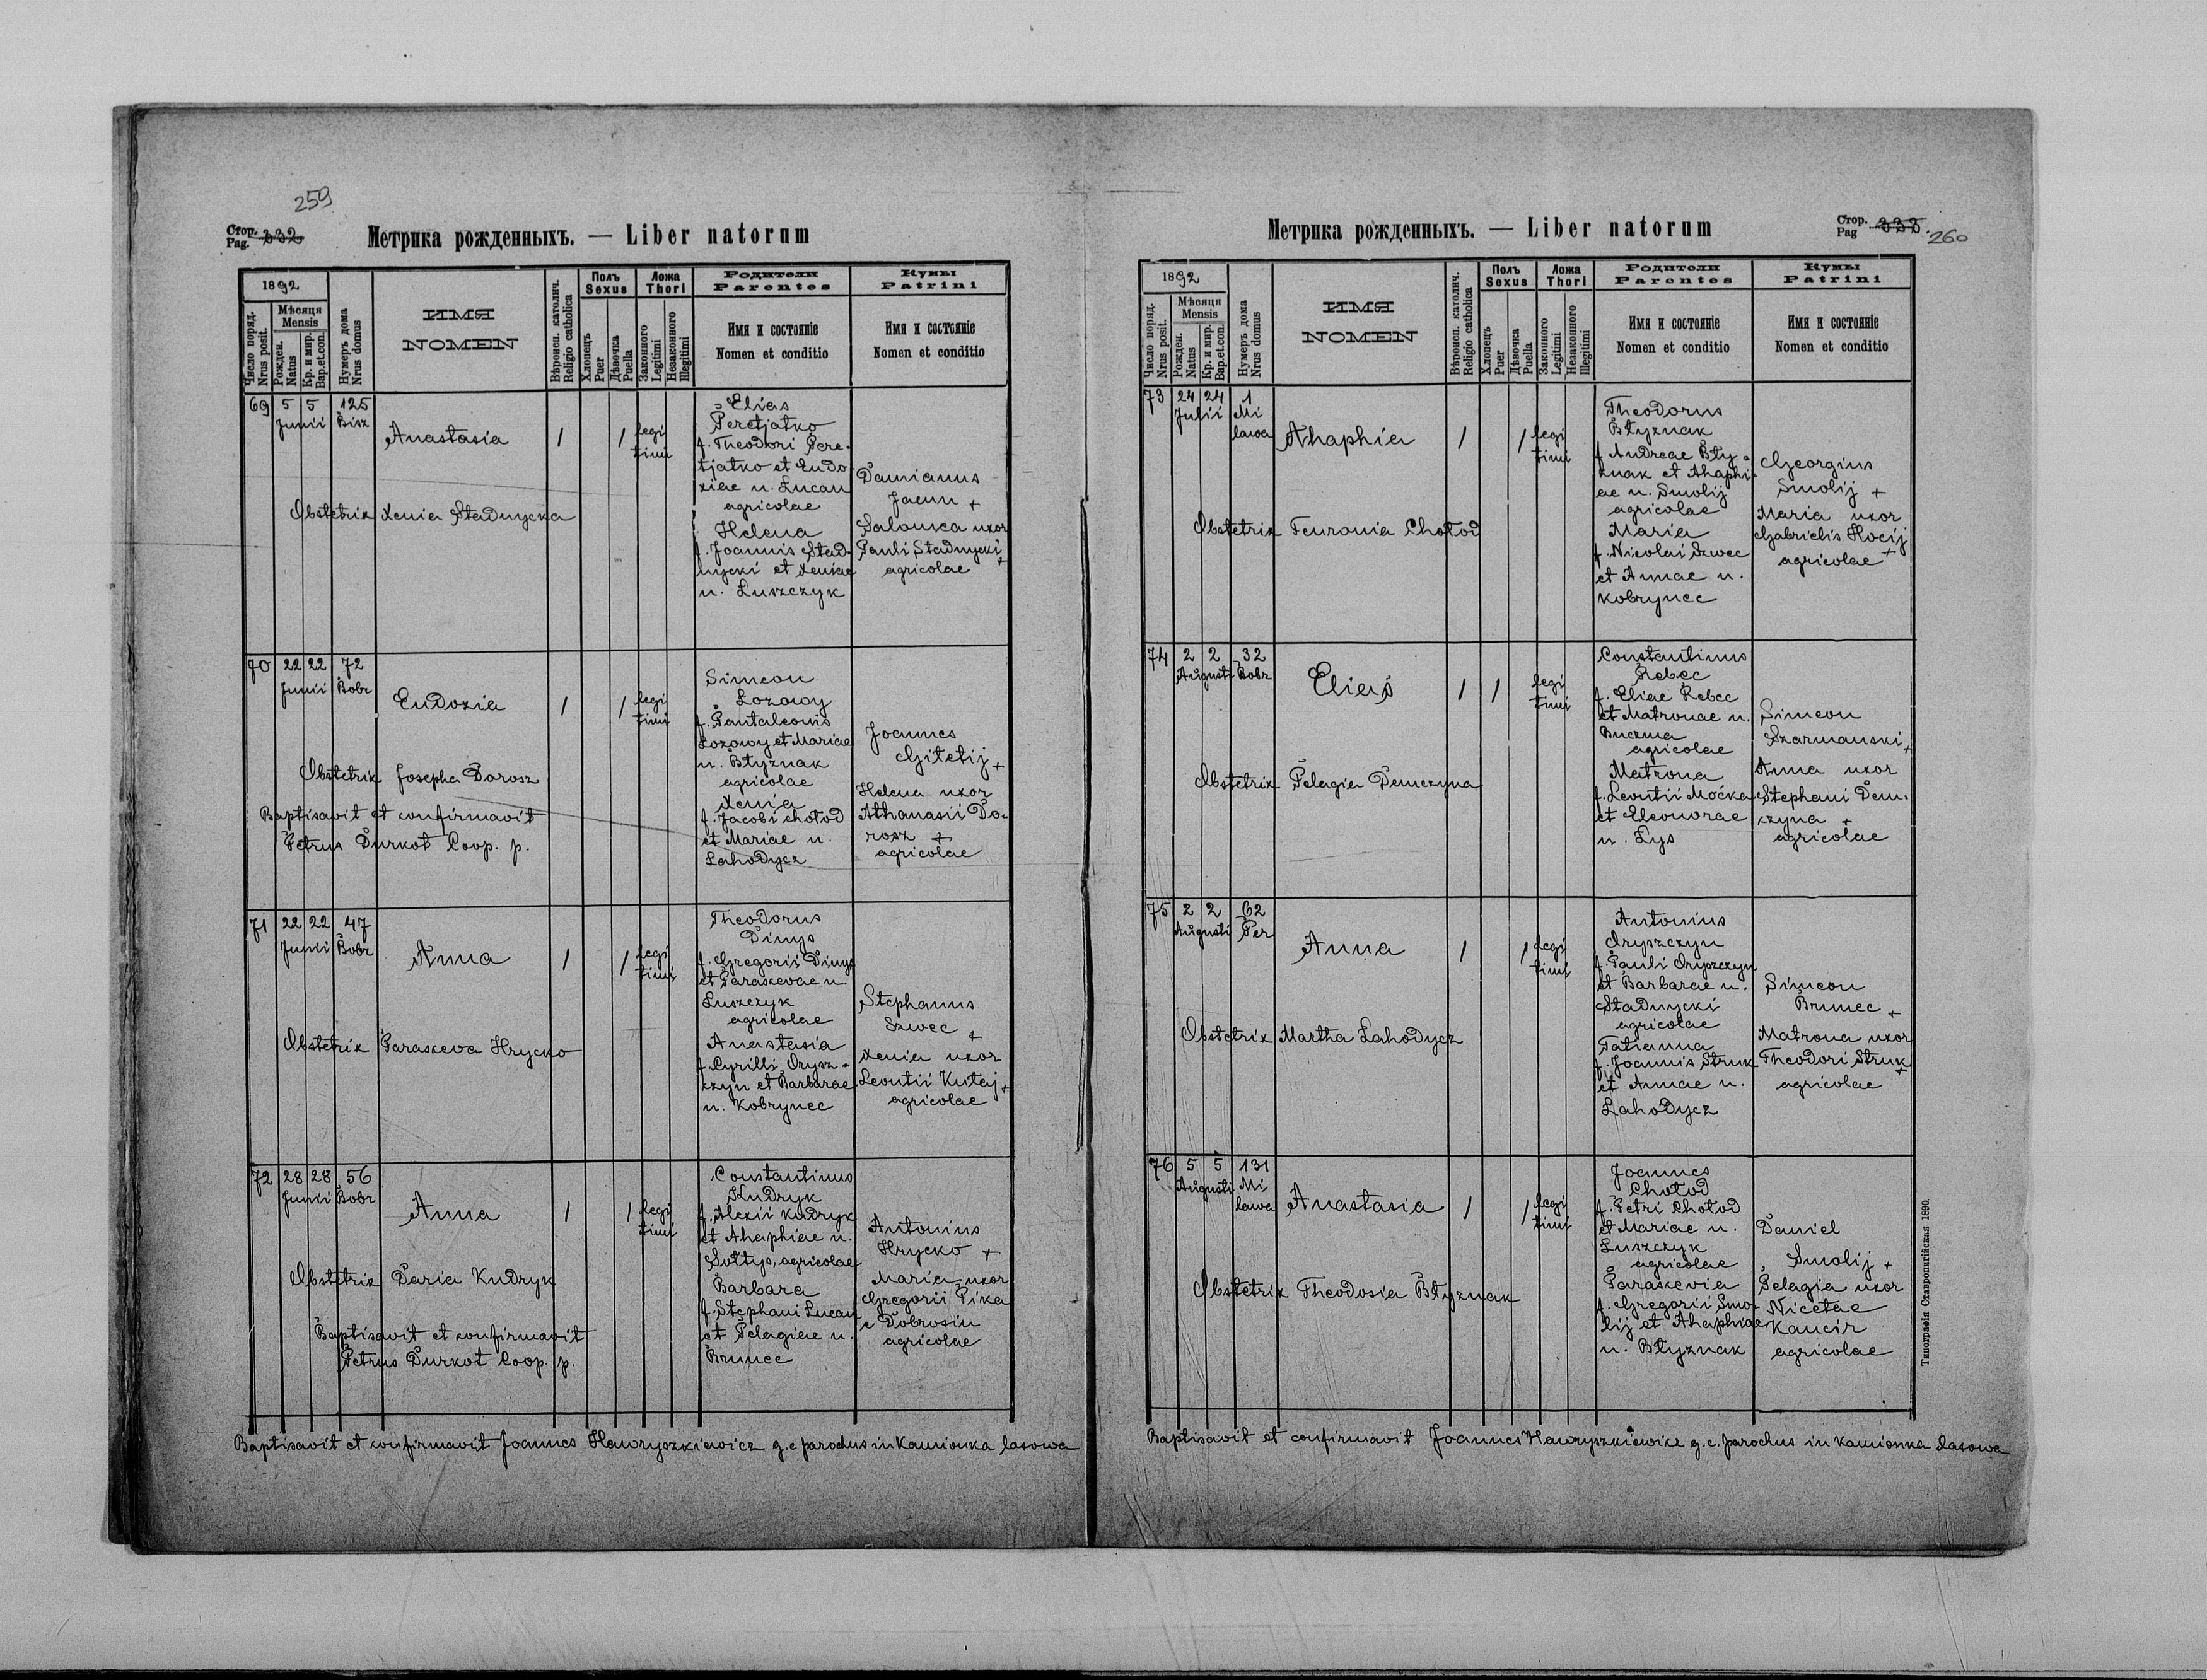 259
Стор. Pag. 232
Метрика рожденныхъ. — Liber natorum
1892
Число поряд. Nrus posit.
Мѣсяця Mensis
Рожден. Natus
Кр. и мир. Bap.et.con.
Нумеръ дома Nrus domus
ИМЯ
NOMEN
Вѣронсп. католич. Religio catholica
Полъ Sexus
Хлопецъ Puer
Дѣвочка Puella
Ложа Thori
Законного Legitimi
Незаконного Illegitimi
Родители
Parentes
Имя и состояніе
Nomen et conditio
Кумы
Patrini
Имя и состояніе
Nomen et conditio
69 5 5 125
Junii Bisz
Anastasia 1 1 legi
timi
Elias
Peretjatko
f. Theodori Pere-
tjatko et Eudo
xiae n. Lucan
agricolae
Helena
f. Joannis Stad-
nycki et Xeniae
n. Luszczyk
Damianus
Jacun +
Salomea uxor
Pauli Stadnycki +
agricolae
Obstetrix Xenia Stadnycka
70 22 22 72
Junii Bobr
Eudoxia 1 1 legi
timi
Simeon
Lozowy
f. Pantaleonis
Lozowy et Mariae
n. Błyznak
agricolae
Xenia
f. Jacobi Chołod
et Mariae n.
Lahodycz
Joannes
Gitetij +
Helena uxor
Athanasii Do-
rosz +
agricolae
Obstetrix Josepha Dorosz
Baptisavit et confirmavit
Petrus Durkot Coop. p.
71 22 22 47
Junii Bobr
Anna 1 1 legi
timi
Theodorus
Dinys
f. Gregorii Dinys
et Parascevae n.
Luszczyk
agricolae
Anastasia
f. Cyrilli Orysz-
czyn et Barbarae
n. Kobrynec
Stephanus
Szwec +
Xenia uxor
Leontii Kutaj +
agricolae
Obstetrix Parasceva Hrycko
72 28 28 56
Junii Bobr
Anna 1 1 legi
timi
Constantinus
Kudryk
f. Alexii Kudryk
et Ahaphiae n.
Sołtys, agricolae
Barbara
f. Stephani Lucan
et Pelagiae n.
Brunec
Antonius
Hrycko +
Maria uxor
Gregorii Pika
e Dobrosin
agricolae
Obstetrix Daria Kudryk
Baptisavit et confirmavit
Petrus Durkot Coop. p.
Baptisavit et confirmavit Joannes Hawryszkiewicz g. c parochus in Kamionka lasowa
Метрика рожденныхъ. — Liber natorum
Стор. Pag 333. 260
1892
Число поряд. Nrus posit.
Мѣсяця Mensis
Рожден. Natus
Кр. и мир. Bap.et.con.
Нумеръ дома Nrus domus
ИМЯ
NOMEN
Вѣронсп. католич. Religio catholica
Полъ Sexus
Хлопецъ Puer
Дѣвочка Puella
Ложа Thori
Законного Legitimi
Незаконного Illegitimi
Родители
Parentes
Имя и состояніе
Nomen et conditio
Кумы
Patrini
Имя и состояніе
Nomen et conditio
73 24 24 1
Julii Mi
lawa
Ahaphia 1 1 legi
timi
Theodorus
Błyznak
f. Andreae Bły-
znak et Ahaphi-
ae n. Smolij
agricolae
Maria
f. Nicolai Szwec
et Annae n.
Kobrynec
Georgius
Smolij +
Maria uxor
Gabrielis Hocij +
agricolae
Obstetrix Feuronia Chołod
74 2 2 32
Augusti Bobr
Elias 1 1 legi
timi
Constantinus
Rebec
f. Eliae Rebec
et Matronae n.
Buczma
agricolae
Matrona
f. Leontii Moćka
et Eleonorae
n. Lys
Simeon
Szarmanski +
Anna uxor
Stephani Dem-
czyna +
agricolae
Obstetrix Pelagia Demczyna
75 2 2 62
Augusti Per
Anna 1 1 legi
timi
Antonius
Oryszczyn
f. Pauli Oryszczyn
et Barbarae n.
Stadnycki
agricolae
Tatianna
f. Joannis Struk
et Annae n.
Lahodycz
Simeon
Brunec +
Matrona uxor
Theodori Struk +
agricolae
Obstetrix Martha Lahodycz
76 5 5 131
Augusti Mi
lawa
Anastasia 1 1 legi
timi
Joannes
Chołod
f. Petri Chołod
et Mariae n.
Luszczyk
agricolae
Parascevia
f. Gregorii Smo-
lij et Ahaphiae
n. Błyznak
Daniel
Smolij +
Pelagia uxor
Nicetae
Kancir
agricolae
Obstetrix Theodosia Błyznak
Типографія Ставропигійская 1890.
Baptisavit et confirmavit Joannes Hawryszkiewicz g. c. parochus in Kamionka lasowa